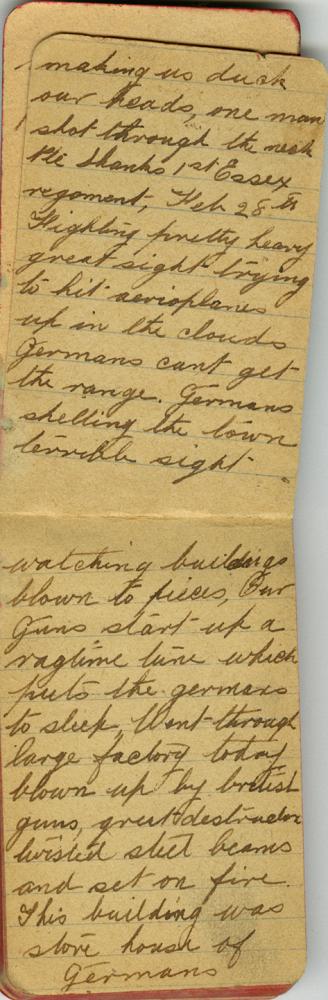 making us duck
our heads, one man
shot through the neck
Pte Shanks 1st Essex
regoment, Feb 28th
Fighting pretty heavy
great sight trying
to hit aerioplanes
up in the clouds
Germans cant get
the range. Germans
shelling the town
terrible sight
watching buildings
blown to pieces, Our
Guns start up a
ragtime tune which
puts the germans
to sleep, Went through
large factory today
blown up by british
guns, great destruction
twisted steel beams
and set on fire.
This building was
store house of
Germans